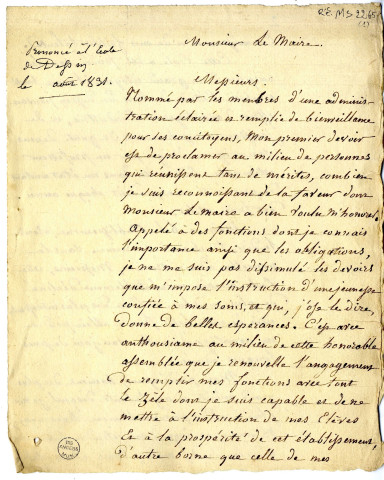 R.E. MS 22
(1)
Monsieur Le Maire.
Prononcé à l'Ecole
de Dessin
le août 1831.
Messieurs.
Nommé par les membres d'une adminis-
tration éclairée et remplie de bienveillance
pour ses concitoyens, Mon premier devoir
est de proclamer au milieu de personnes
qui réunissent tant de mérites, combien
je suis reconnoissant de la faveur dont
Monsieur le Maire a bien voulu m'honorer.
Appelé à des fonctions dont je connais
l'importance ainsi que les obligations,
je ne me suis pas dissimulé les devoirs
que m'impose l'instruction d'une jeunesse
confiée à mes soins, et qui, j'ose le dire,
donne de belles espérances. C'est avec
anthousiasme au milieu de cette honorable
assemblée que je renouvelle l'angagement
de remplir mes fonctions avec tout
le zèle dont je suis capable et de ne
mettre à l'instruction de mes Elèves
Et à la prospérité de cet établissement,
d'autre borne que celle de mes